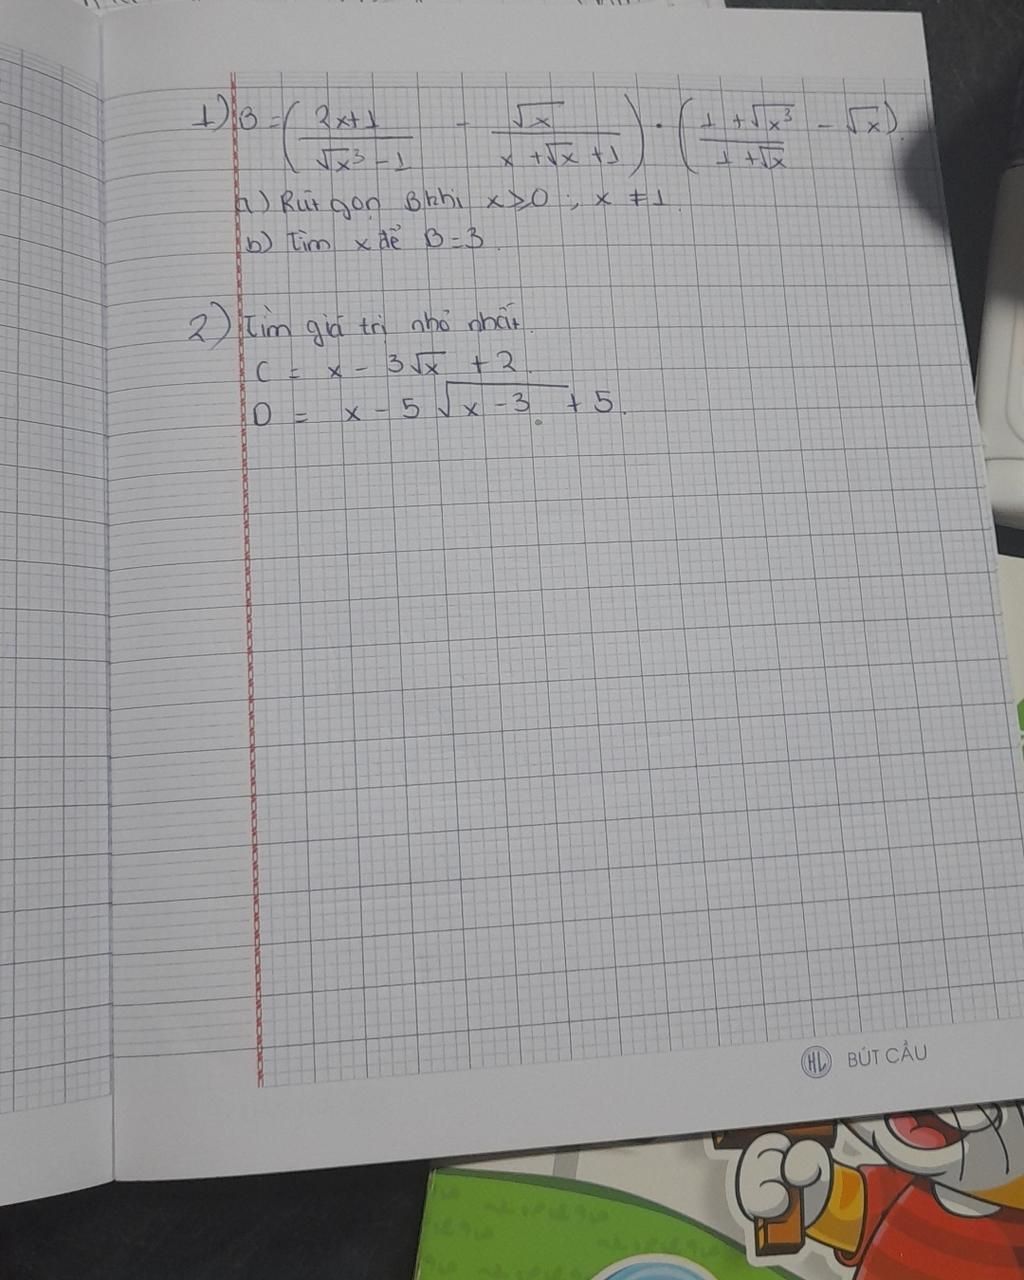 1) B = ( (2x+1)/(√x³ - 1) - √x/(x + √x + 1) ) . ( (1 + √x³)/(1 + √x) - √x ).
a) Rút gọn B khi x ≥ 0 ; x ≠ 1.
b) Tìm x để B = 3.
2) Tìm giá trị nhỏ nhất.
C = x - 3√x + 2.
D = x - 5 √(x - 3) + 5.
HL BÚT CẦU